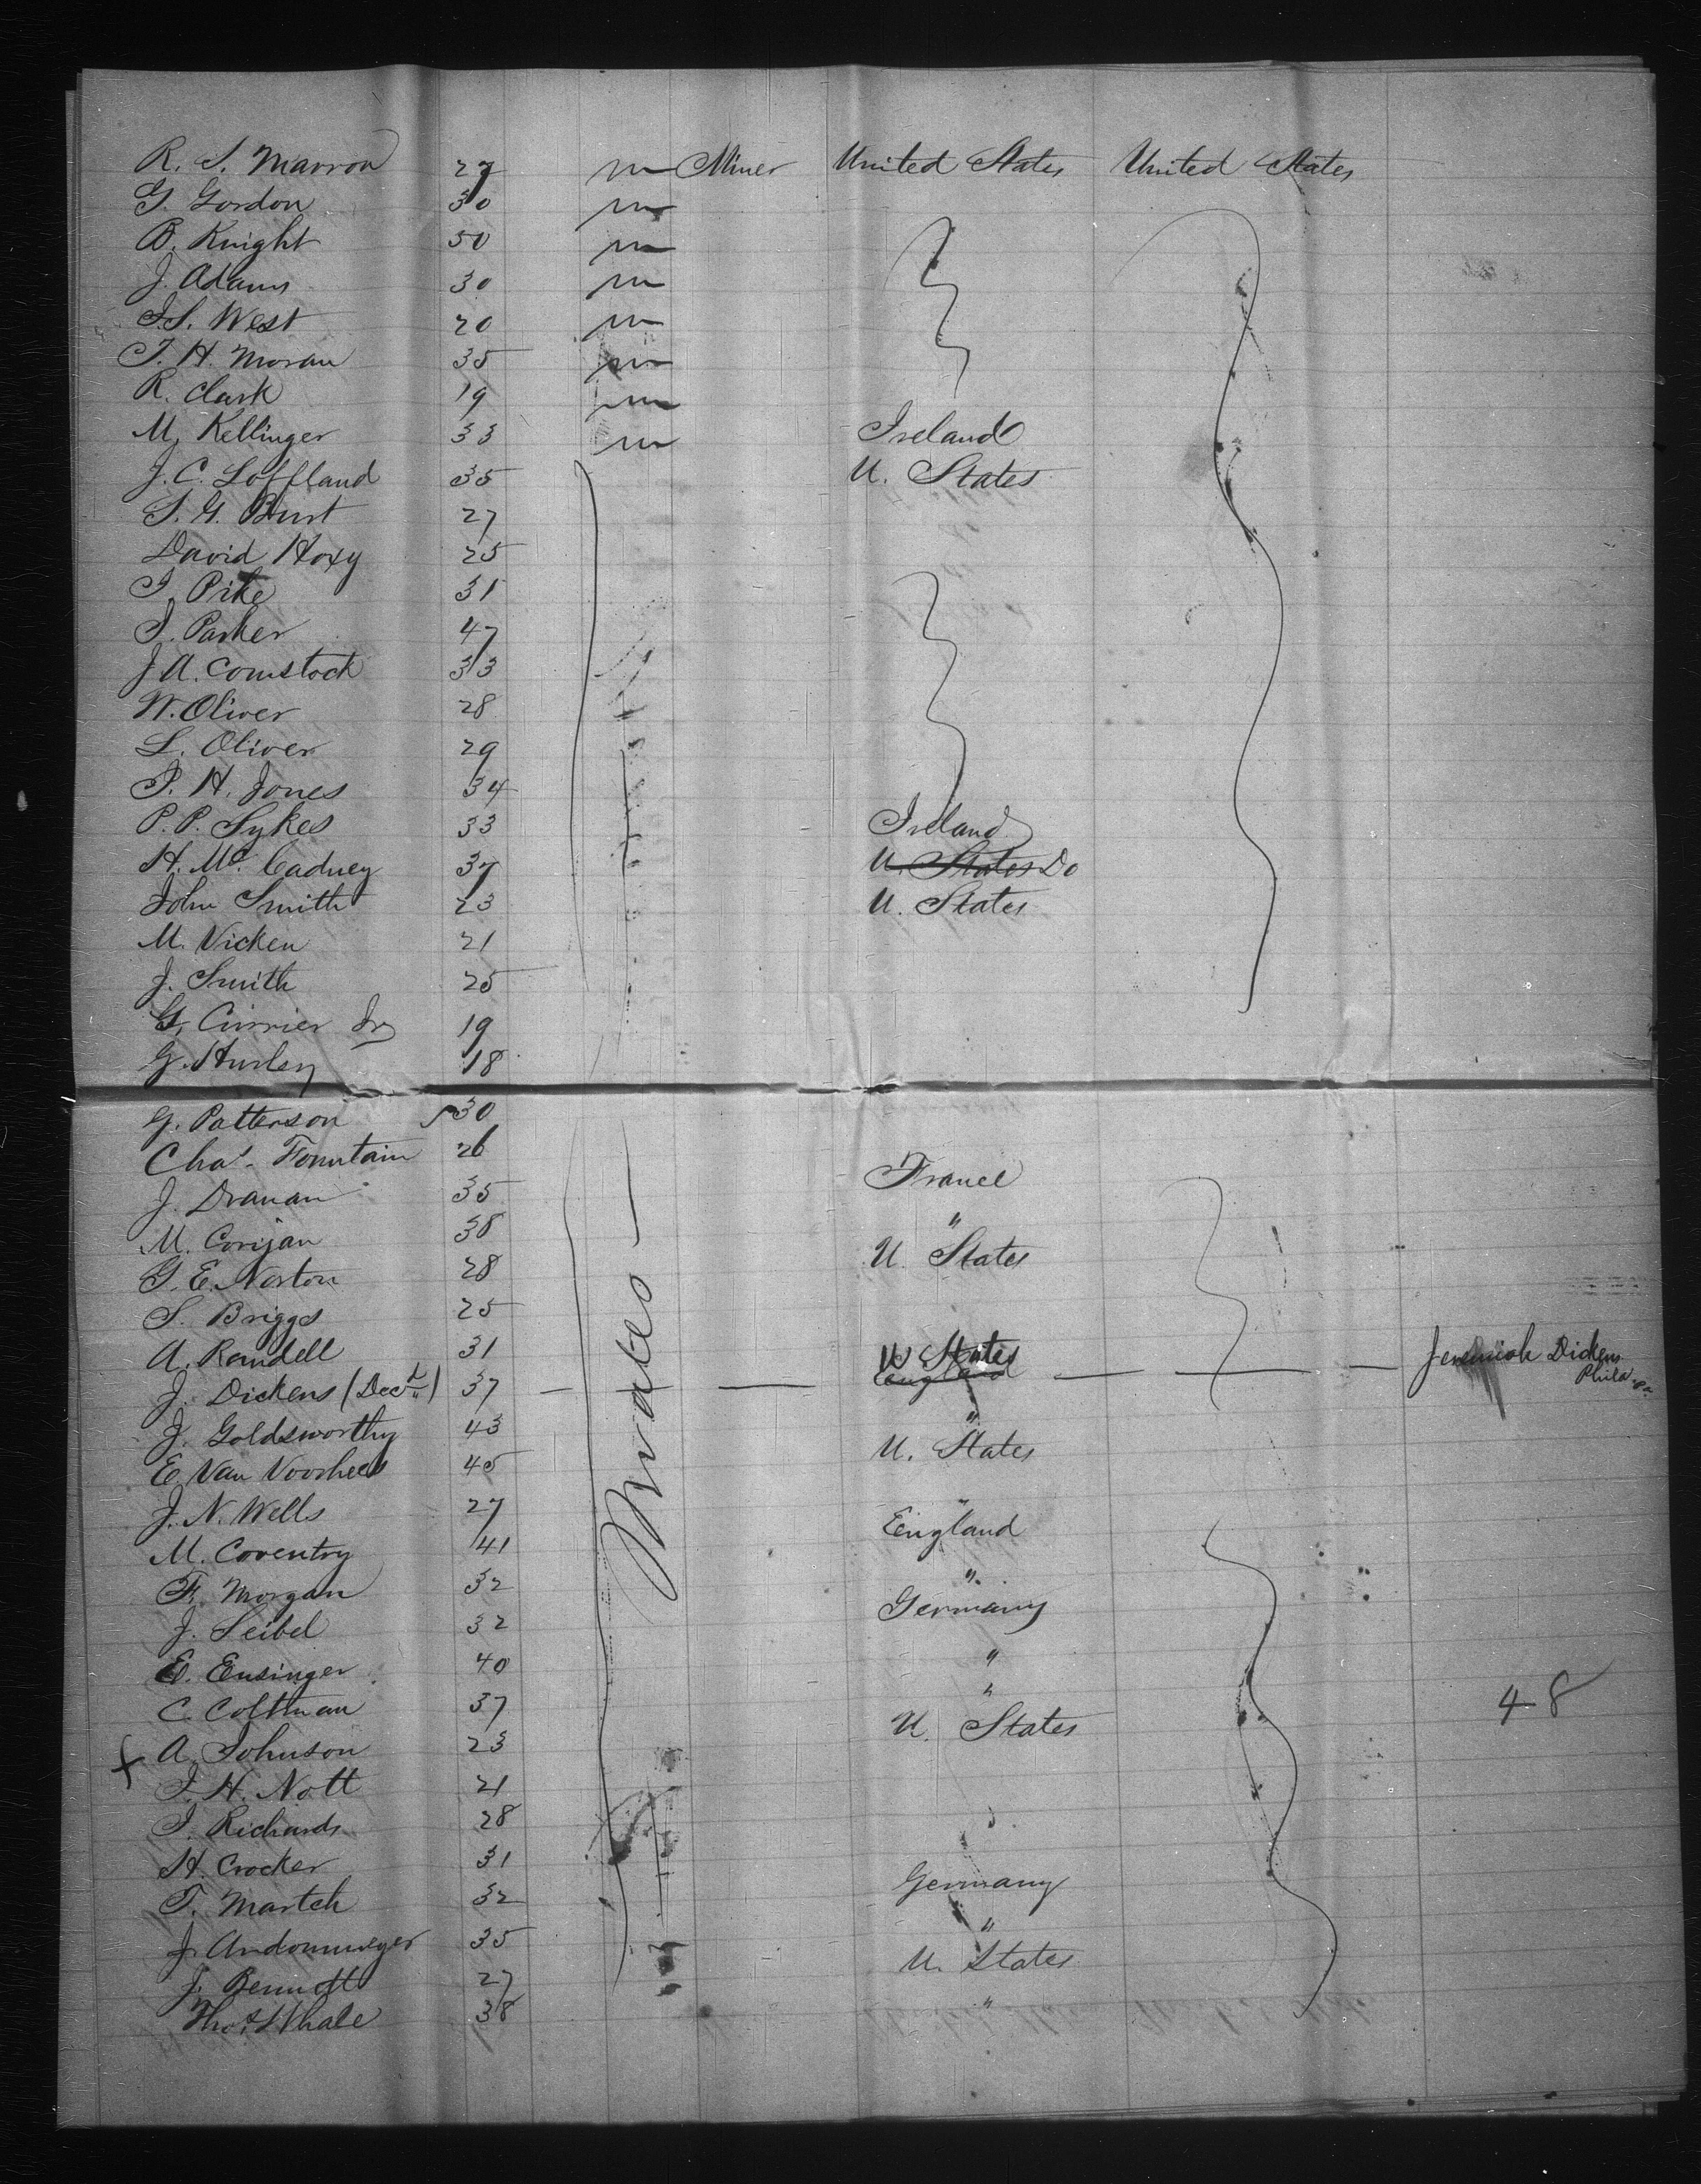 R. S. Marron 27 m Miner United States United States
G. Gordon 30 m
B. Knight 50 m
J. Adams 30 m
I.S. West 20 m
T. H. Moran 35 m
R. Clark 19 m
M. Kellinger 33 m Ireland
J. C. Loffland 35 U. States
S. G. Burt 27
David Hoxy 25
I. Pike 31
S. Parker 47
J A. Comstock 33
W. Oliver 28
L. Oliver 29
P. H. Jones 34
P. P. Sykes 33 Ireland
H. Mc. Cadney 37 U. States Do
John Smith 23 U. States
M. Vicken 21
J. Smith 25
G. Currier Jr 19
G. Hurley 18
G. Patterson 30
Chas. Fountain 26
J. Dranan 35 France
M. Corijan 38 "
G. E. Norton 28 U. States
S. Briggs 25
A. Randell 31 U States
J. Dickens (Decd) 37 — — England — — — Jeremiah Dickens Phila Pa
J. Goldsworthy 43 "
E. Van Voorhees 45 U. States
J. N. Wells 27
M. Coventry 41 England
F. Morgan 32 "
J. Seibel 32 Germany
E. Ensinger 40 "
C. Coltman 37 " 48
x A. Johnson 23 U. States
I. H. Nott 21
I. Richards 28
H. Crocker 31
T. Martch 32 Germany
J. Andommeyer 35 "
J. Bennett 27 U. States
Thos. Whale 38 "
Males